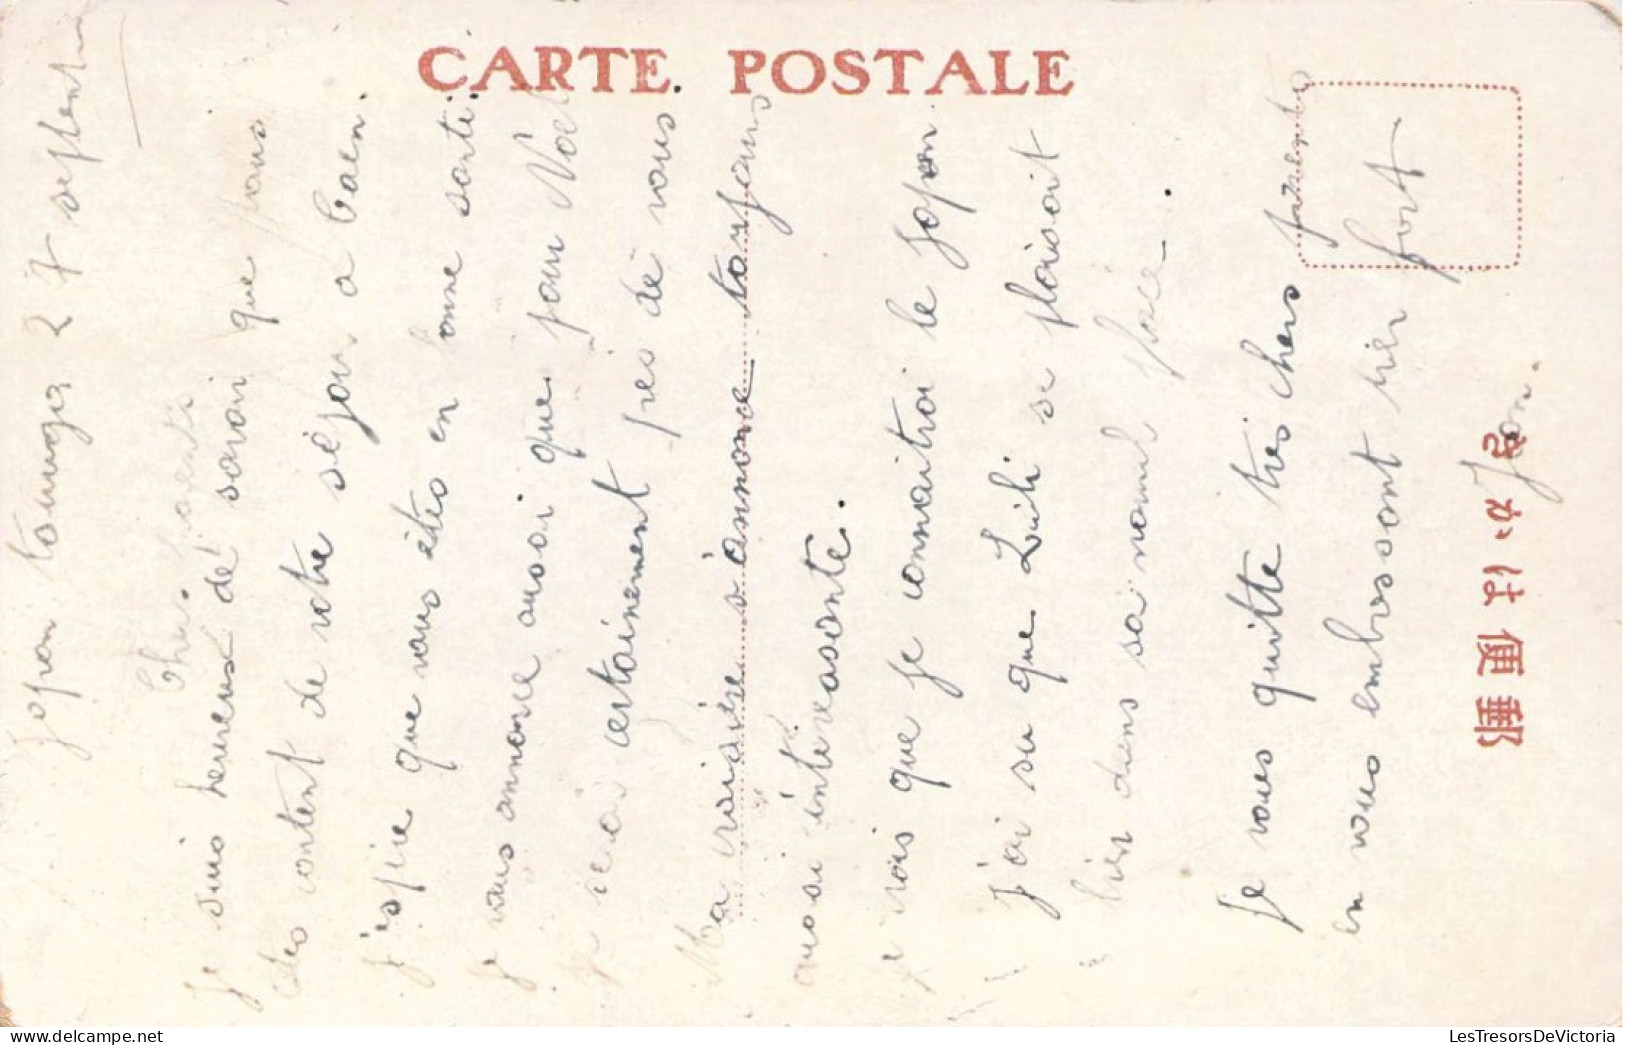 CARTE POSTALE
Japon 27 septembre
Chers parents
Je suis heureux de savoir que vous
êtes content de votre séjour a Caen.
j'espère que vous êtes en bonne santé.
Je vous annonce aussi que pour Noel
je serais certainement pres de vous.
Ma croisière s'annonce toujours
aussi interessante.
je vois que je connaitrai le Japon
j'ai su que Lili se plaisait
bien dans sa nouvelle place.
Je vous quitte très chers parents
en vous embrassant bien fort
Jean.
郵便はかき
LesTresorsDeVictoria